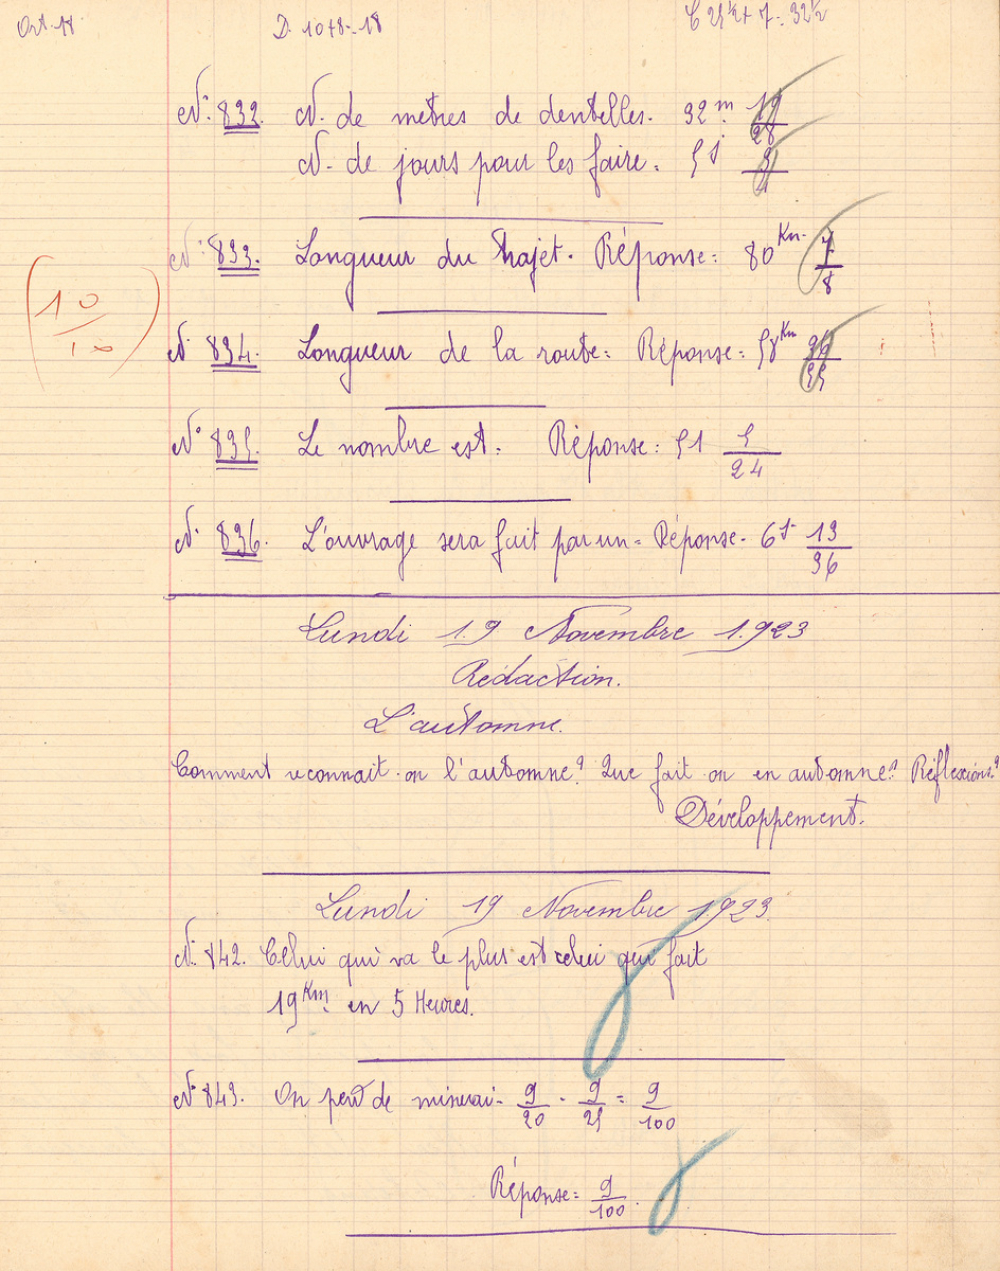 Ort. 18 D. 10+8=18 C 25½+7=32½
N° 832. N. de mètres de dentelles. 32 m 19/28
N. de jours pour les faire. 5 j 3/4
N° 833. Longueur du trajet. Réponse: 80 Km. 7/8
10/10
N° 834. Longueur de la route: Réponse: 58 Km 36/55
N° 835. Le nombre est. Réponse: 51 5/24
N° 836. L'ouvrage sera fait par un = Réponse. 6 j. 13/36
Lundi 19 Novembre 1923
Rédaction.
L'automne.
Comment reconnait-on l'automne? Que fait on en automne? Réflexions?
Développement.
Lundi 19 Novembre 1923.
N°. 842. Celui qui va le plus est celui qui fait
19 Km. en 5 Heures.
N° 843. On perd de minerai = 9/20 - 9/25 = 9/100
Réponse = 9/100.